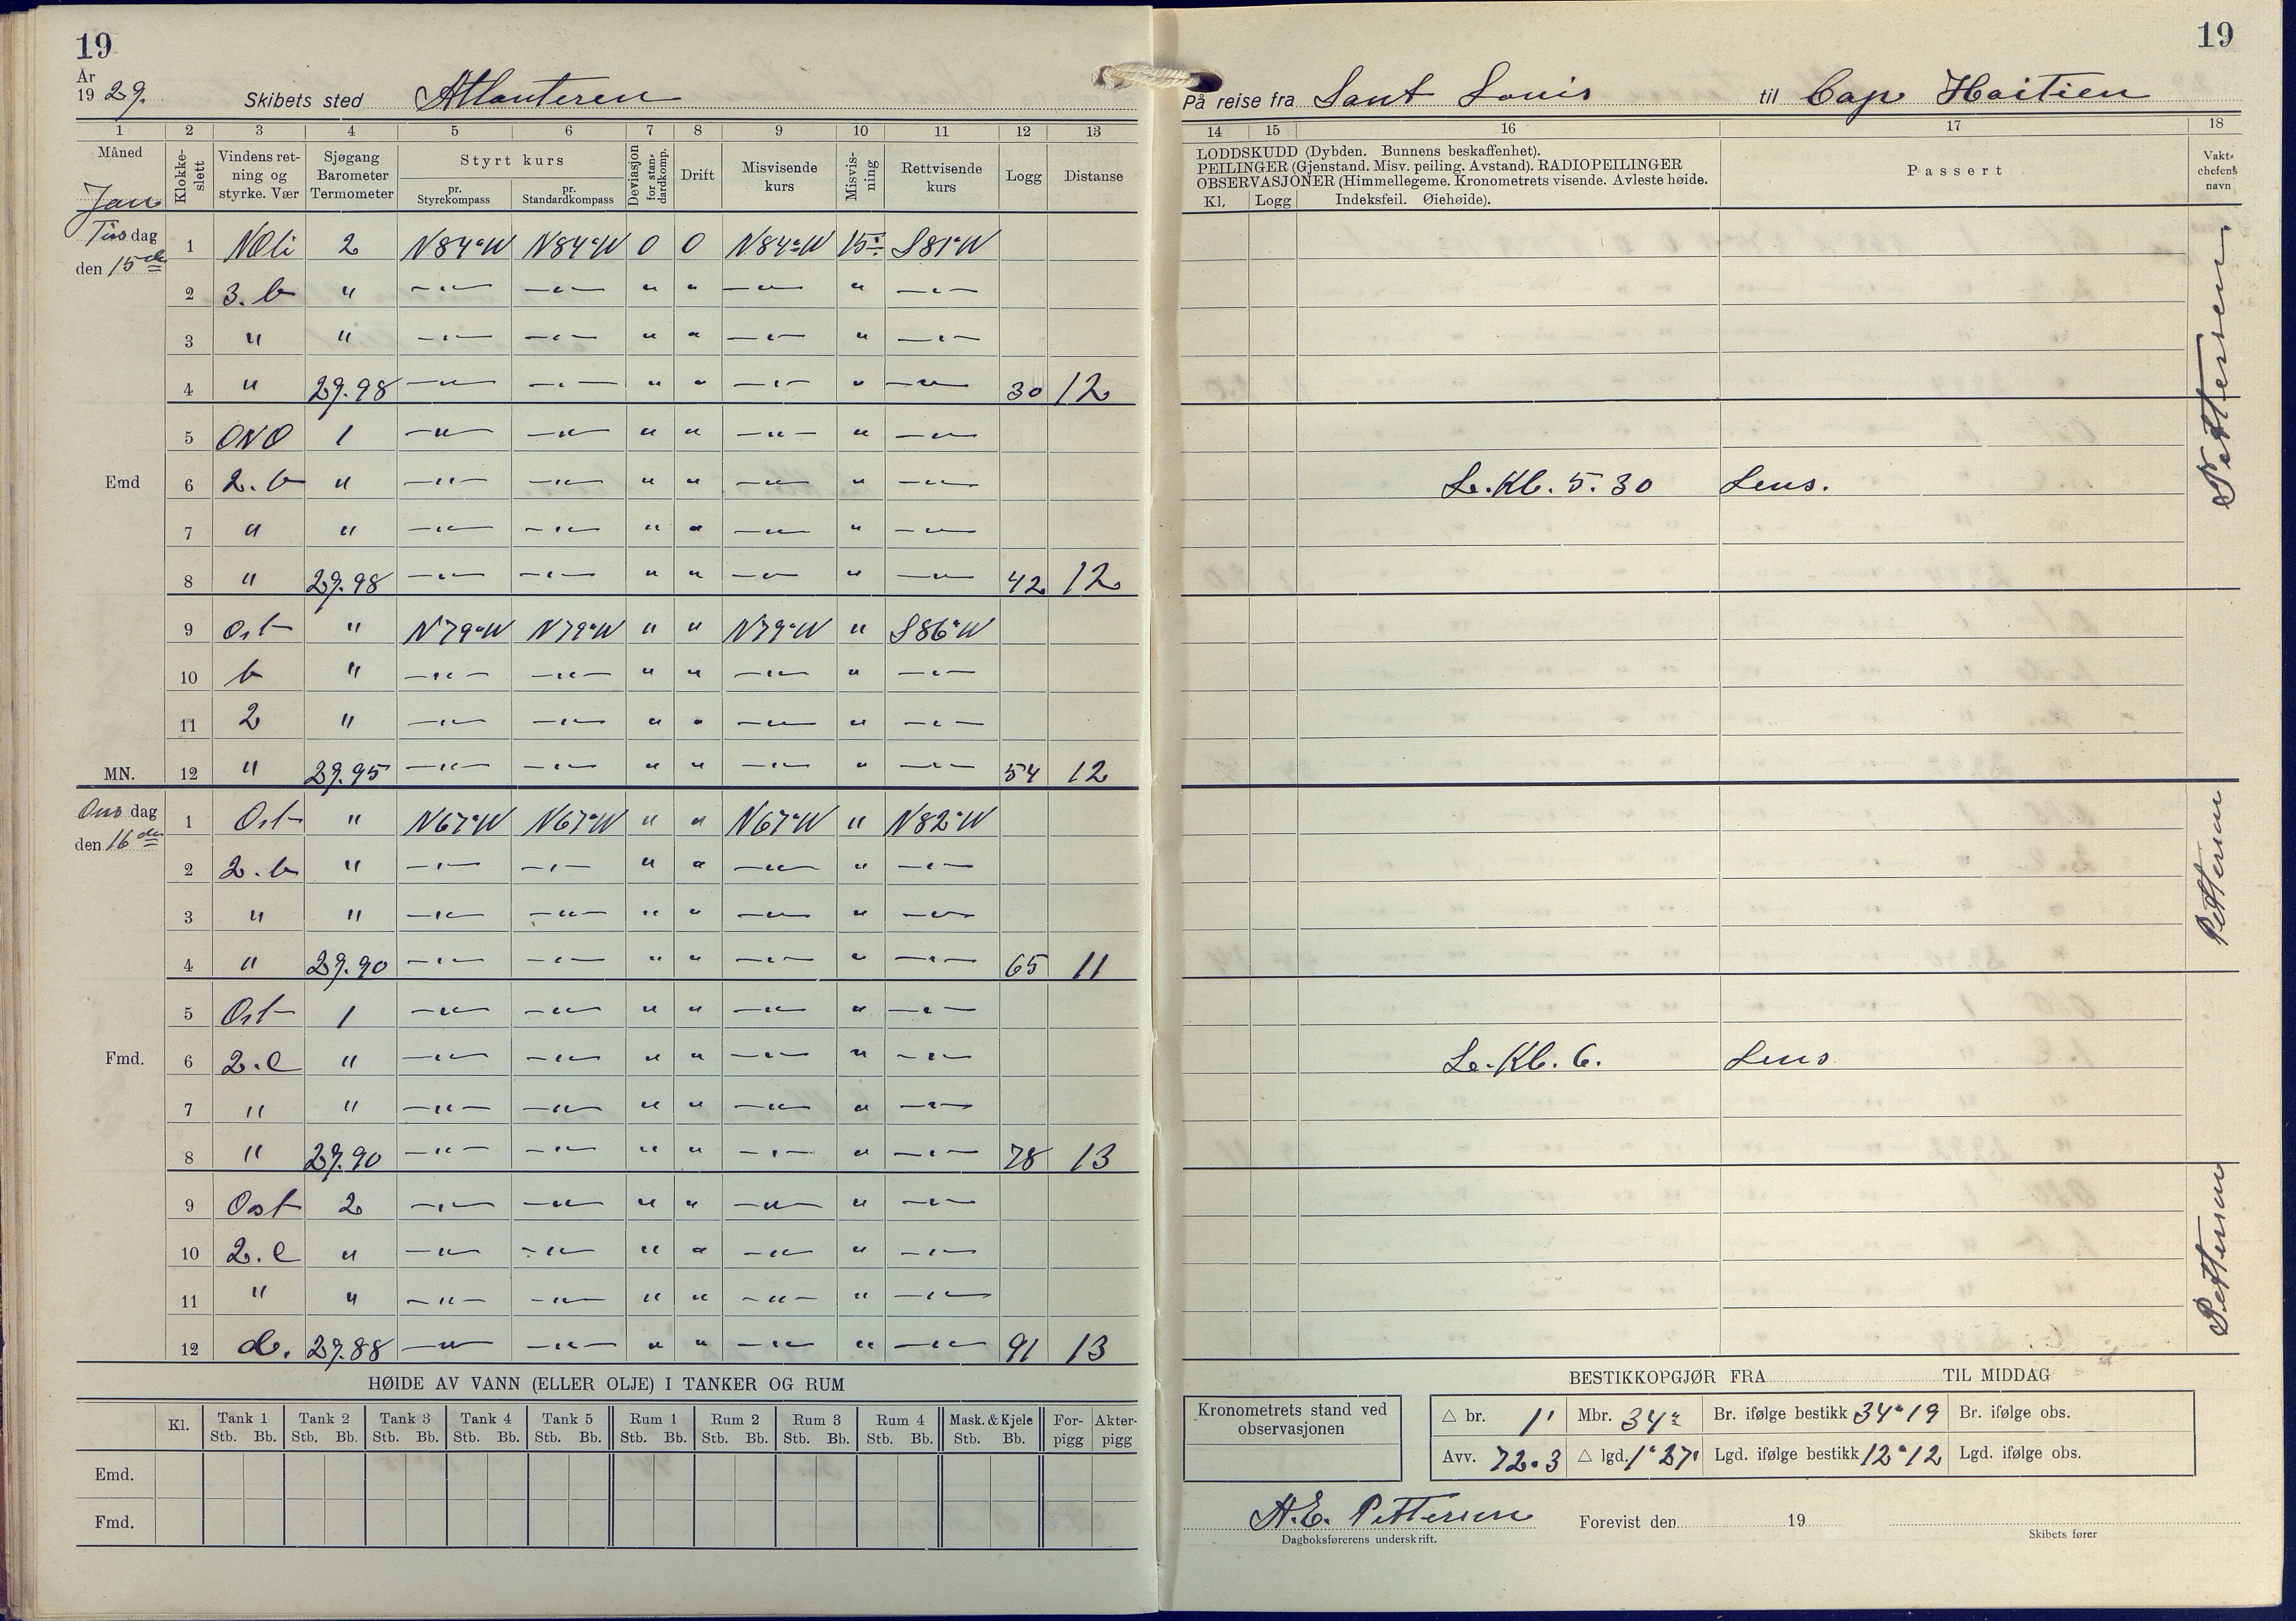 19
19
År
1929.
Skibets sted Atlanteren
På reise fra Sant Louis til Cap Haitien
1 2 3 4 5 6 7 8 9 10 11 12 13
14 15 16 17 18
Måned Jan
Klokke-slett
Vindens ret-ning og styrke. Vær
Sjøgang Barometer Termometer
Styrt kurs
pr. Styrekompass
pr. Standardkompass
Deviasjon for stan-dardkomp.
Drift
Misvisende kurs
Misvis-ning
Rettvisende kurs
Logg
Distanse
LODDSKUDD (Dybden. Bunnens beskaffenhet).
PEILINGER (Gjenstand. Misv. peiling. Avstand). RADIOPEILINGER
OBSERVASJONER (Himmellegeme. Kronometrets visende. Avleste høide.
Kl. Logg Indeksfeil. Øiehøide).
Passert
Vakt-chefens navn
Tirsdag den 15de
1 NOli 2 N84°W N84°W 0 0 N84°W 15° S81°W
2 3. b " —"— —"— " " —"— " —"—
3 " " —"— —"— " " —"— " —"—
4 " 29.98 —"— —"— " " —"— " —"— 30 12
5 ONO 1 —"— —"— " " —"— " —"—
Emd 6 2. b " —"— —"— " " —"— " —"— Le. Kl. 5.30 Lens.
7 " " —"— —"— " " —"— " —"—
8 " 29.98 —"— —"— " " —"— " —"— 42 12
Pettersen
9 Ost " N79°W N79°W " " N79°W " S86°W
10 b " —"— —"— " " —"— " —"—
11 2 " —"— —"— " " —"— " —"—
MN. 12 " 29.95 —"— —"— " " —"— " —"— 54 12
Onsdag den 16de
1 Ost " N67°W N67°W " " N67°W " N82°W
2 2. b " —"— —"— " " —"— " —"—
3 " " —"— —"— " " —"— " —"—
4 " 29.90 —"— —"— " " —"— " —"— 65 11
Pettersen
5 Ost 1 —"— —"— " " —"— " —"—
Fmd. 6 2. c " —"— —"— " " —"— " —"— Le. Kl. 6. Lens
7 " " —"— —"— " " —"— " —"—
8 " 29.90 —"— —"— " " —"— " —"— 78 13
9 Ost 2 —"— —"— " " —"— " —"—
10 2. c " —"— —"— " " —"— " —"—
11 " " —"— —"— " " —"— " —"—
12 d. 29.88 —"— —"— " " —"— " —"— 91 13
Pettersen
HØIDE AV VANN (ELLER OLJE) I TANKER OG RUM
Kl. Tank 1 Tank 2 Tank 3 Tank 4 Tank 5 Rum 1 Rum 2 Rum 3 Rum 4 Mask. & Kjele For-pigg Akter-pigg
Stb. Bb. Stb. Bb. Stb. Bb. Stb. Bb. Stb. Bb. Stb. Bb. Stb. Bb. Stb. Bb. Stb. Bb. Stb. Bb.
Emd.
Fmd.
BESTIKKOPGJØR FRA TIL MIDDAG
Kronometrets stand ved observasjonen
△ br. 1' Mbr. 34° Br. ifølge bestikk 34°19 Br. ifølge obs.
Avv. 72.3 △ lgd. 1°27' Lgd. ifølge bestikk 12°12 Lgd. ifølge obs.
A.E. Pettersen
Dagboksførerens underskrift.
Forevist den 19
Skibets fører